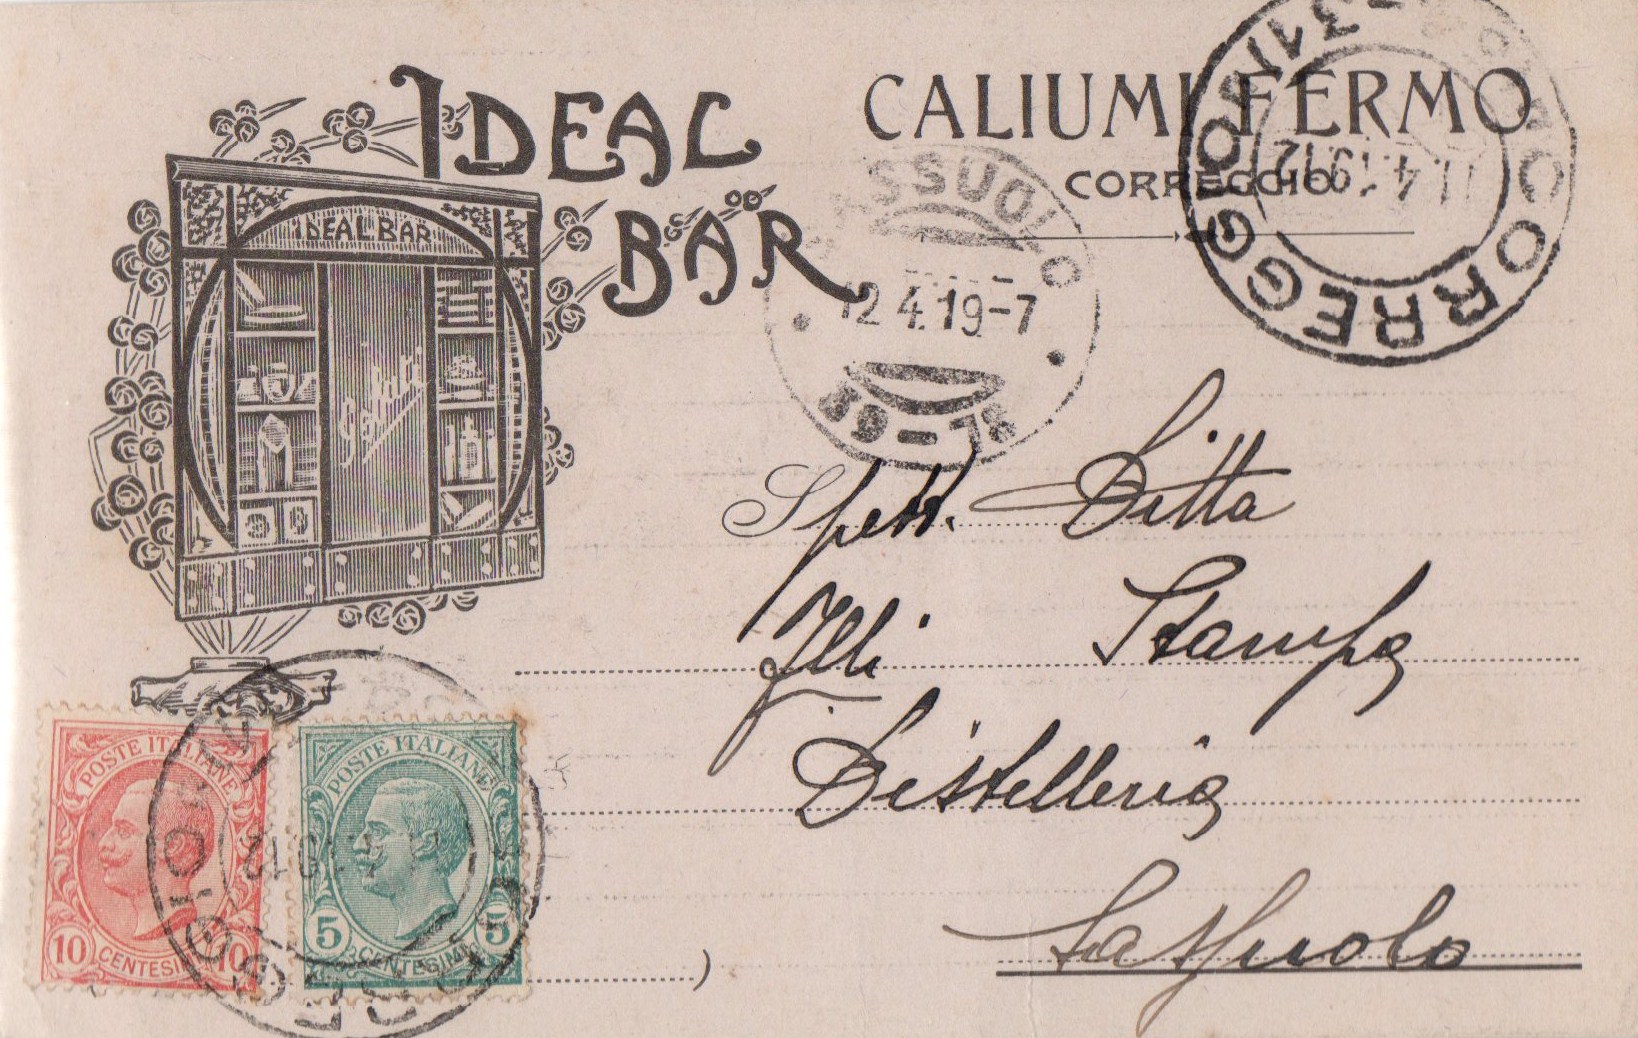 IDEAL
BAR
CALIUMI FERMO
CORREGGIO
IDEAL BAR
SASSUOLO
12 4.19-7
CORREGGIO
11.4.19 12
Spett. Ditta
Flli Stampa
Distilleria
Sassuolo
)
POSTE ITALIANE
10 CENTESIMI 10
POSTE ITALIANE
5 CENTESIMI 5
CORREGGIO